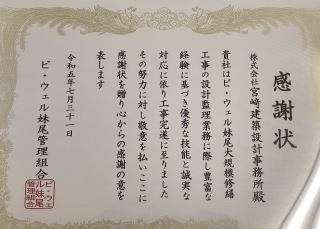 感謝状
株式会社宮崎建築設計事務所殿
貴社はビ・ウェル妹尾大規模修繕
工事の設計監理業務に際し豊富な
経験に基づき優秀な技能と誠実な
対応に依り工事完遂に至りました
その努力に対し敬意を払いここに
感謝状を贈り心からの感謝の意を
表します
令和五年七月三十一日
ビ・ウェル妹尾管理組合
ビ・ウェ
ル妹尾
管理組合